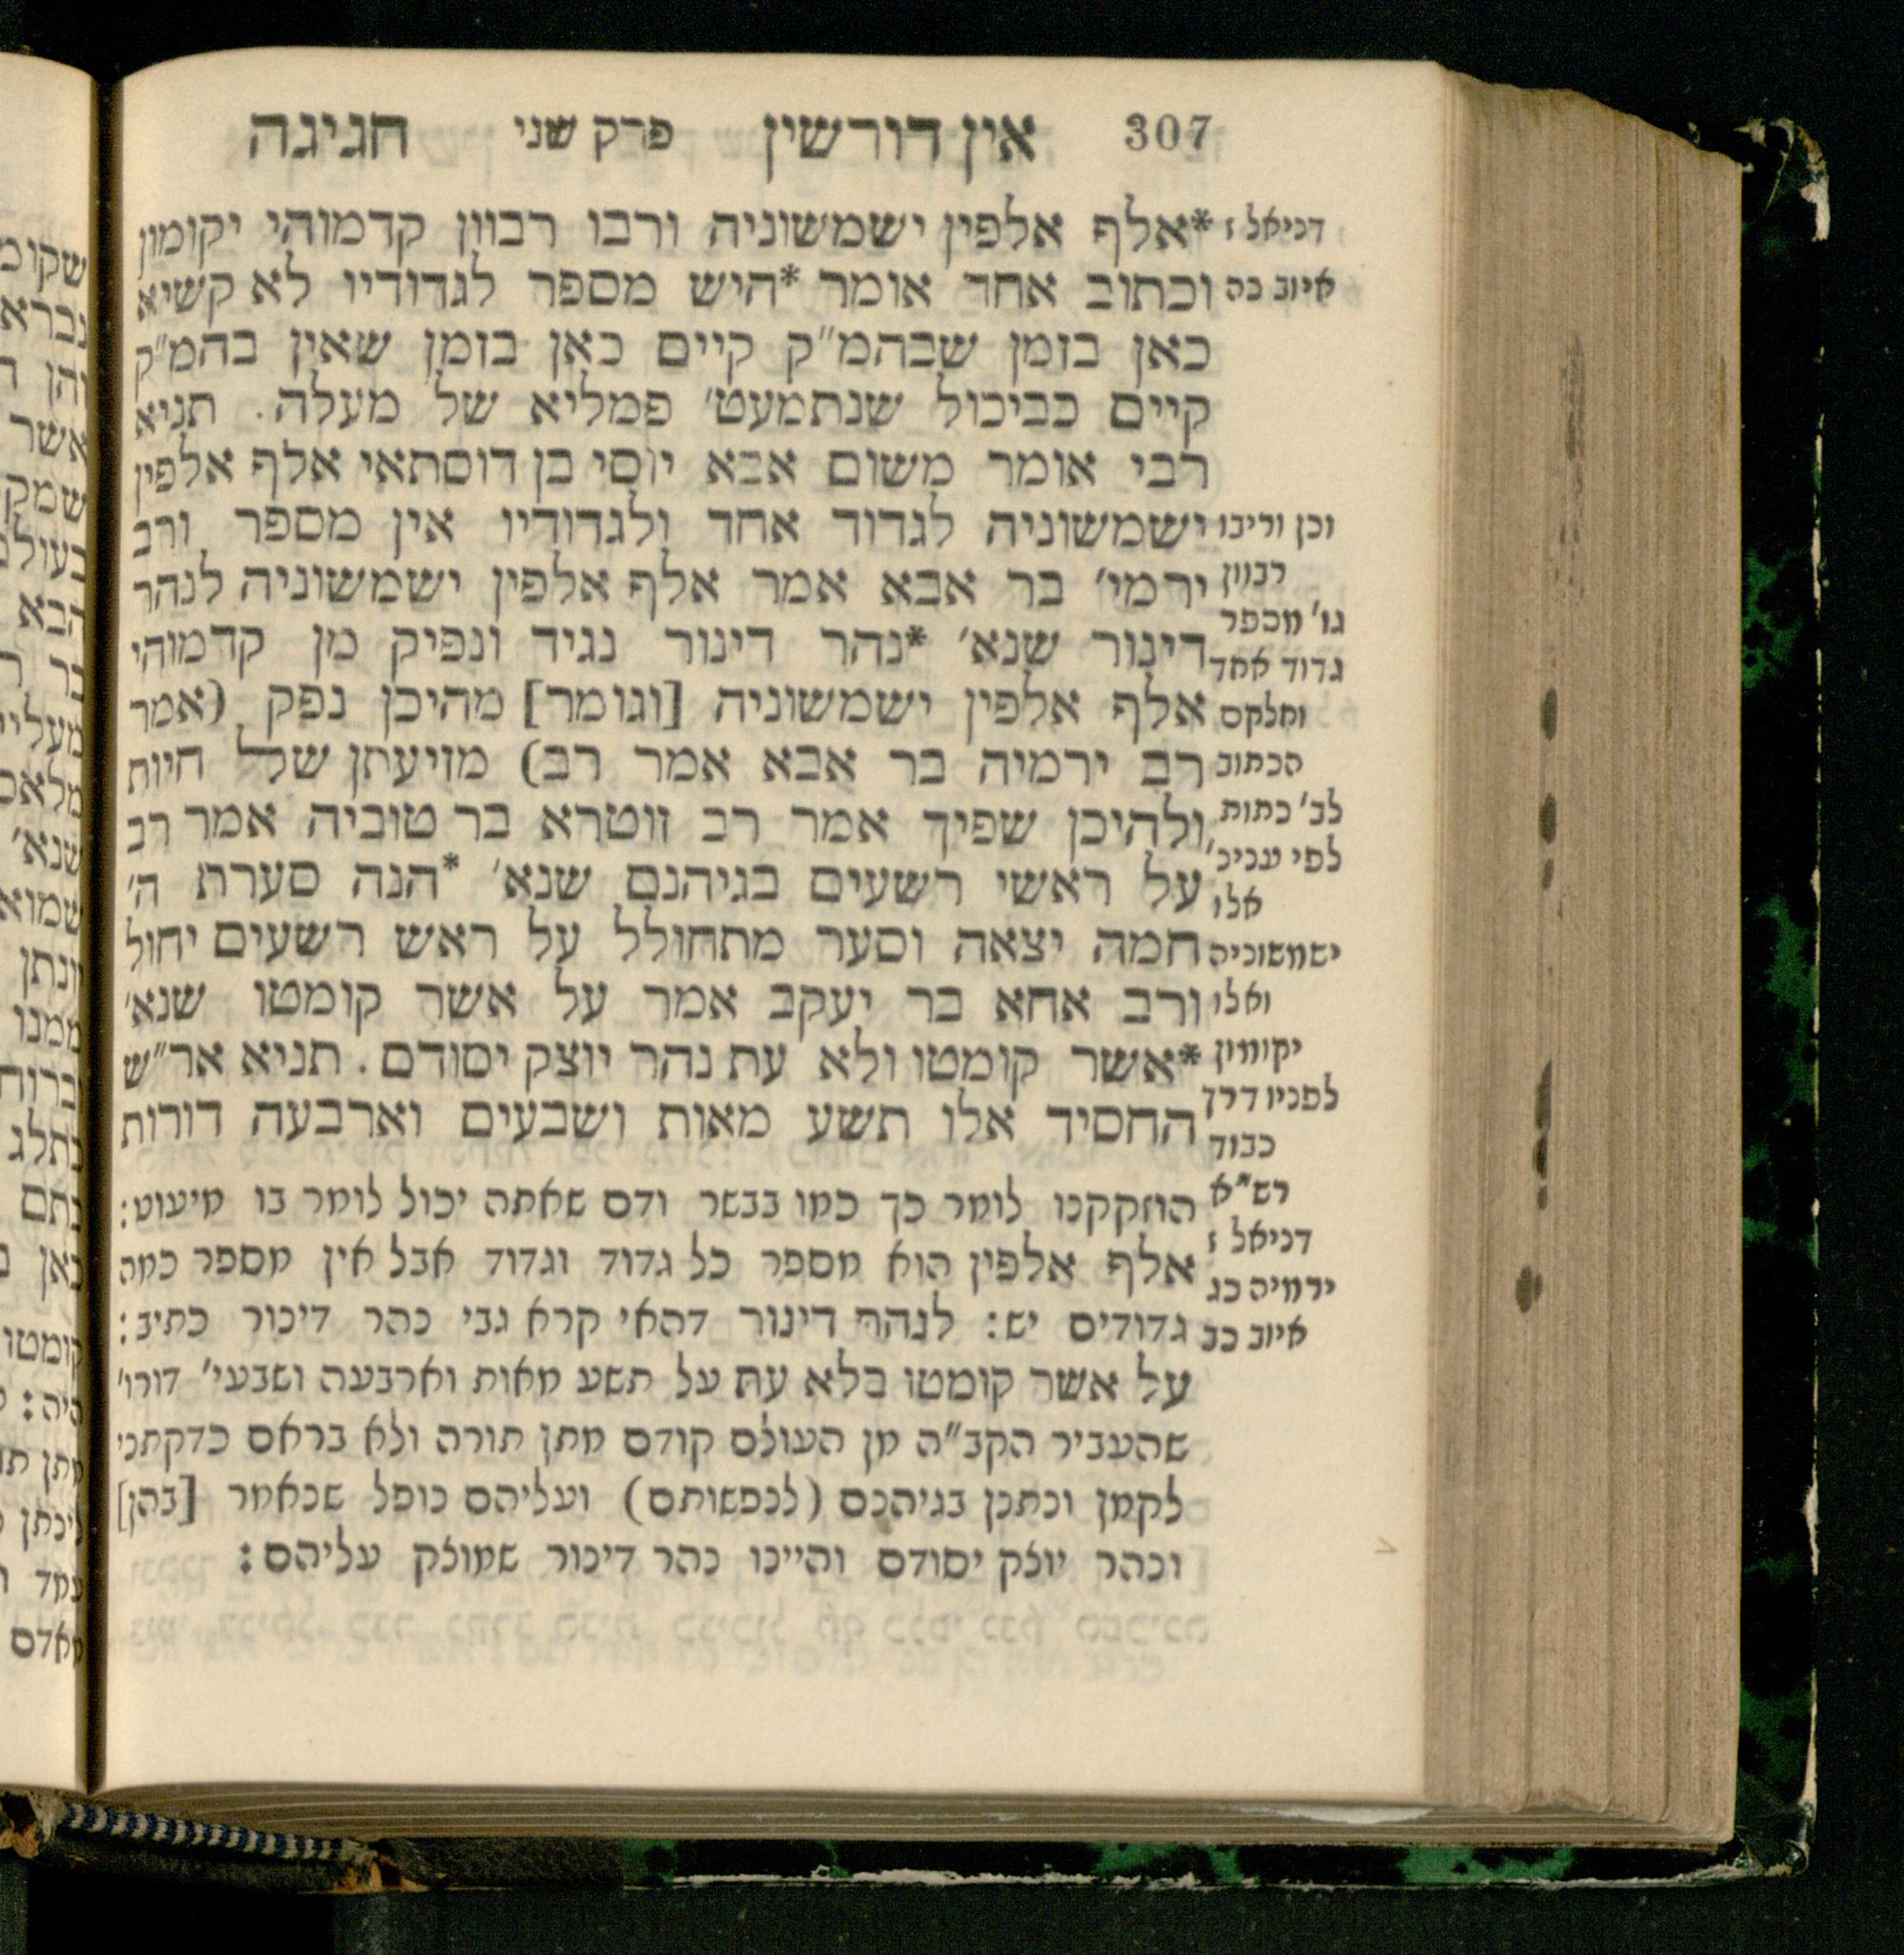 307 אין דורשין פרק שני חגיגה
*אלף אלפין ישמשוניה ורבו רבוון קדמוהי יקומון
וכתוב אחד אומר *היש מספר לגדודיו לא קשיא
כאן בזמן שבהמ״ק קיים כאן בזמן שאין בהמ״ק
קיים כביכול שנתמעט׳ פמליא של מעלה. תניא
רבי אומר משום אבא יוסי בן דוסתאי אלף אלפין
ישמשוניה לגדוד אחד ולגדודיו אין מספר ורב
ירמי׳ בר אבא אמר אלף אלפין ישמשוניה לנהר
דינור שנא׳ *נהר דינור נגיד ונפיק מן קדמוהי
אלף אלפין ישמשוניה [וגומר] מהיכן נפק (אמר
רב ירמיה בר אבא אמר רב) מזיעתן של חיות
ולהיכן שפיך אמר רב זוטרא בר טוביה אמר רב
על ראשי רשעים בגיהנם שנא׳ *הנה סערת ה׳
חמה יצאה וסער מתחולל על ראש רשעים יחול
ורב אחא בר יעקב אמר על אשר קומטו שנא׳
*אשר קומטו ולא עת נהר יוצק יסודם. תניא אר״ש
החסיד אלו תשע מאות ושבעים וארבעה דורות
הוזקקנו לומר כך כמו בבשר ודם שאתה יכול לומר בו מיעוט:
אלף אלפין הוא מספר כל גדוד וגדוד אבל אין מספר כמה
גדודים יש: לנהר דינור דהאי קרא גבי נהר דינור כתיב:
על אשר קומטו בלא עת על תשע מאות וארבעה ושבעי׳ דורו׳
שהעביר הקב״ה מן העולם קודם מתן תורה ולא בראם כדקתני
לקמן ונתנן בגיהנם (לנפשותם) ועליהם נופל שנאמר [בהן]
ונהר יוצק יסודם והיינו נהר דינור שמוצק עליהם:
דניאל ז
איוב כה
וכן וריבו
רבוון
גו׳ מספר
גדוד אחד
וחלקם
הכתוב
לב׳ כתות
לפי ענינ׳
אלו
ישמשוניה
ואלו
יקומון
לפניו דרך
כבוד
רש״א
דניאל ז
ירמיה כג
איוב כב